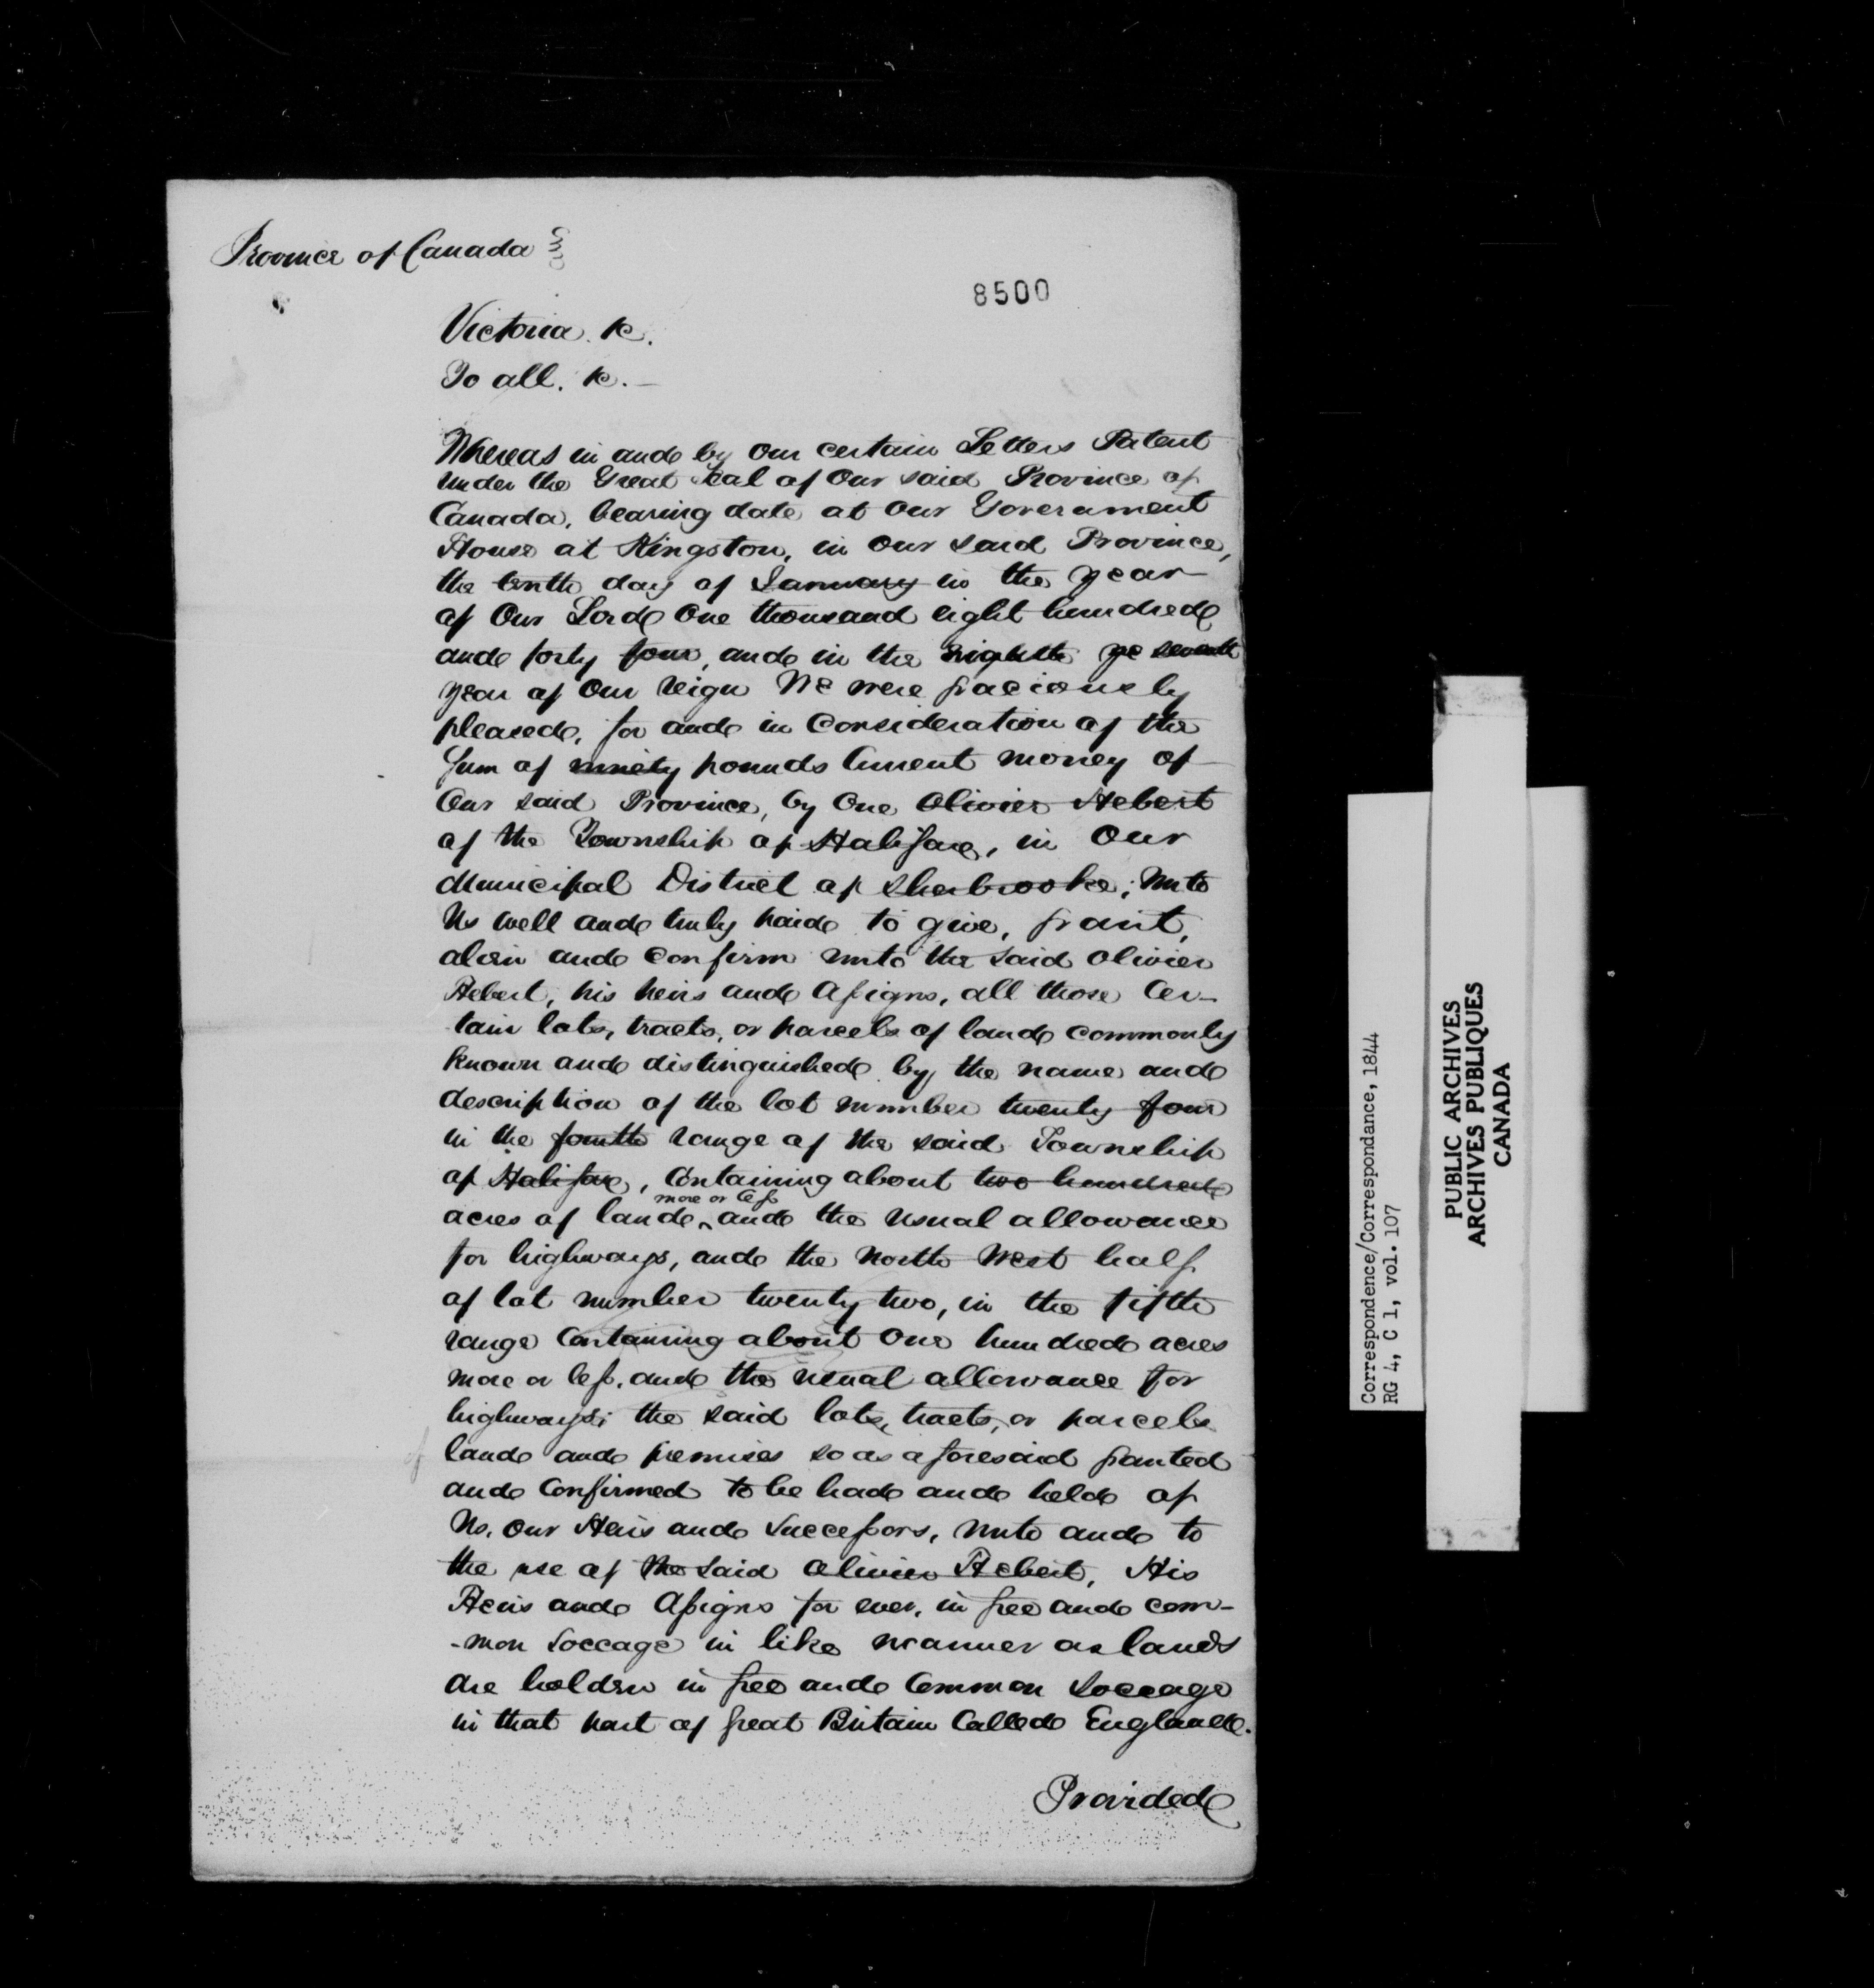 Province of Canada
8500
Victoria. &c.
To all. &c. —
Whereas in and by Our certain Letters Patent
under the Great Seal of Our said Province of
Canada, bearing date at Our Government
House at Kingston, in Our said Province,
the tenth day of January in the year
of Our Lord One thousand eight hundred
and forty four, and in the eighth ye seventh
year of Our reign We were graciously
pleased, for and in Consideration of the
Sum of ninety pounds Current money of
Our said Province, by One Olivier Hebert
of the Township of Halifax, in Our
Municipal District of Sherbrooke; unto
Us well and truly paid to give, grant,
alein and confirm unto the said Olivier
Hebert, his heirs and Assigns, all those Cer-
tain lots, tracts, or parcels of land commonly
known and distinguished by the name and
description of the lot number twenty four
in the fourth range of the said Township
of Halifax, Containing about two hundred
more or less
acres of land, and the usual allowance
for highways, and the North West half
of lot number twenty two, in the fifth
range Containing about One hundred acres
more or less, and the usual allowance for
highways; the said lots, tracts, or parcels
of land and premises so as aforesaid granted
and Confirmed to be had and held of
Us, Our Heirs and Successors, unto and to
the use of the said Olivier Hebert, His
Heirs and Assigns for ever, in free and com-
-mon Soccage in like manner as lands
are holden in free and Common Soccage
in that part of great Britain Called England.
Provided
Correspondence/Correspondance, 1844
RG 4, C 1, vol. 107
PUBLIC ARCHIVES
ARCHIVES PUBLIQUES
CANADA